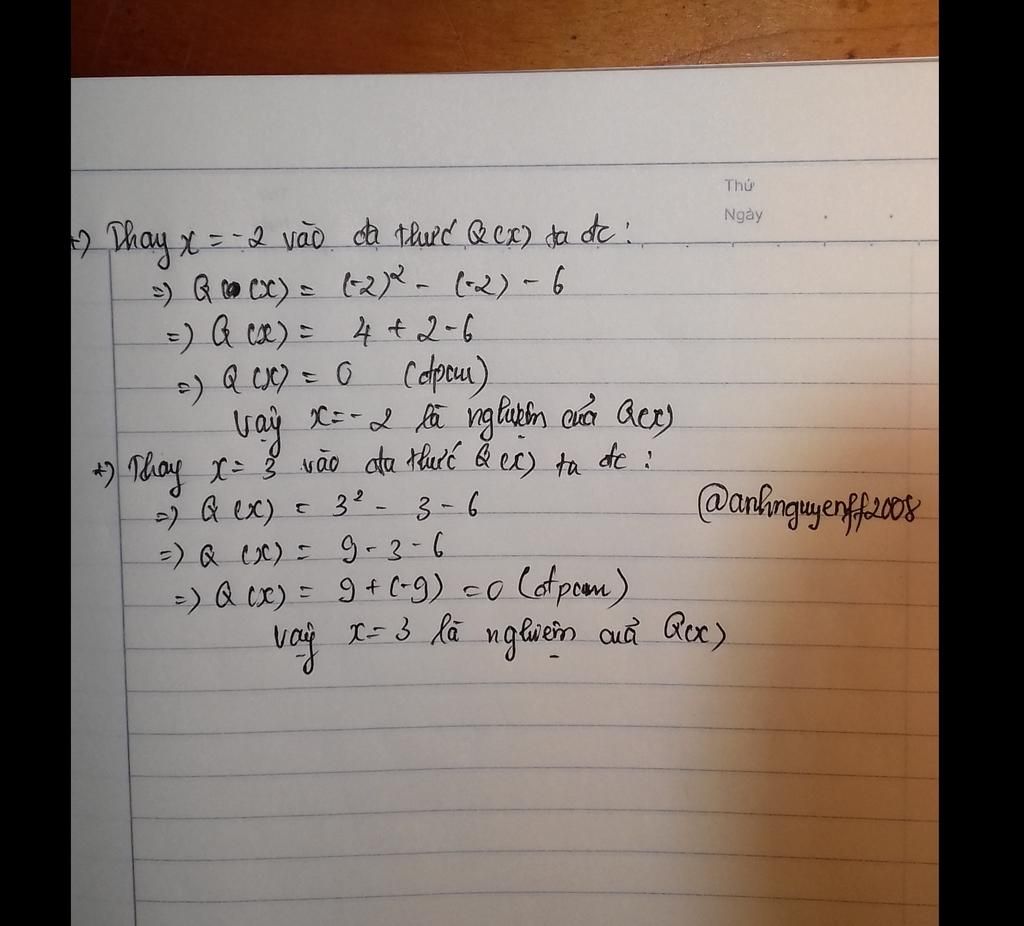 Thứ
Ngày
+) Thay x = -2 vào đa thức Q(x) ta đc :
=) Q (x) = (-2)² - (-2) - 6
=) Q (x) = 4 + 2 - 6
=) Q (x) = 0 (đpcm)
vậy x = - 2 là nghiệm cuả Q(x)
+) Thay x = 3 vào đa thức Q(x) ta đc :
=) Q (x) = 3² - 3 - 6
@anhnguyenff2008
=) Q (x) = 9 - 3 - 6
=) Q (x) = 9 + (-9) = 0 (đpcm)
vậy x = 3 là nghiệm cuả Q(x)